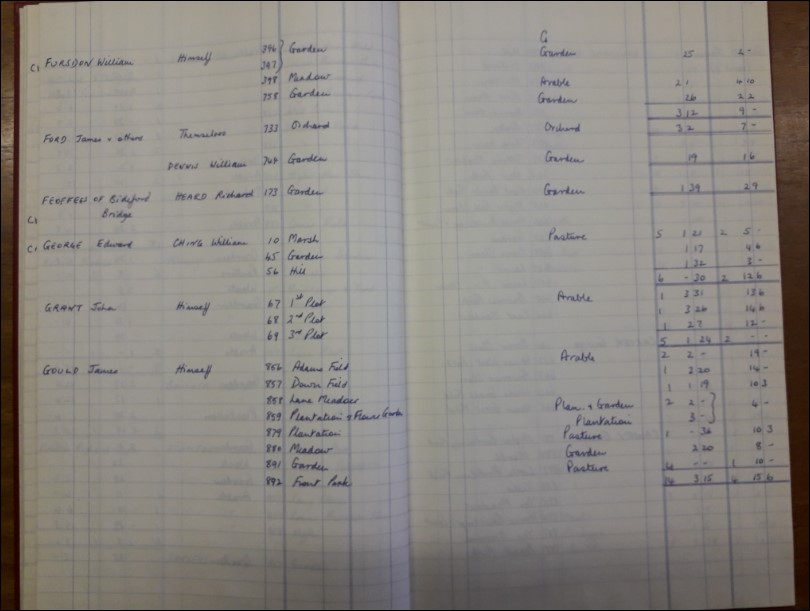 G
396 Garden Garden 25 2 -
C1 FURSDON William Himself 397
398 Meadow Arable 2 1 4 10
758 Garden Garden 26 2 2
3 12 9 -
FORD James & others Themselves 733 Orchard Orchard 3 2 7 -
DENNIS William 744 Garden Garden 19 1 6
FEOFFEES of Bideford HEARD Richard 173 Garden Garden 1 39 2 9
Bridge
C1
C1 GEORGE Edward CHING William 10 Marsh Pasture 5 1 21 2 5 -
45 Garden 1 17 4 6
56 Hill 1 32 3 -
6 - 30 2 12 6
GRANT John Himself 67 1st Plot Arable 1 3 31 13 6
68 2nd Plot 1 3 26 14 6
69 3rd Plot 1 27 12 -
5 1 24 2 - -
GOULD James Himself 856 Adams Field Arable 2 2 - 19 -
857 Down Field 1 2 20 14 -
858 Lane Meadow 1 1 19 10 3
859 Plantation & Flower Garden Plan. & Garden 2 2 - 4 -
879 Plantation Plantation 3 -
880 Meadow Pasture 1 - 36 10 3
891 Garden Garden 2 20 8 -
892 Front Park Pasture 4 - - 1 10 -
14 3 15 4 15 6